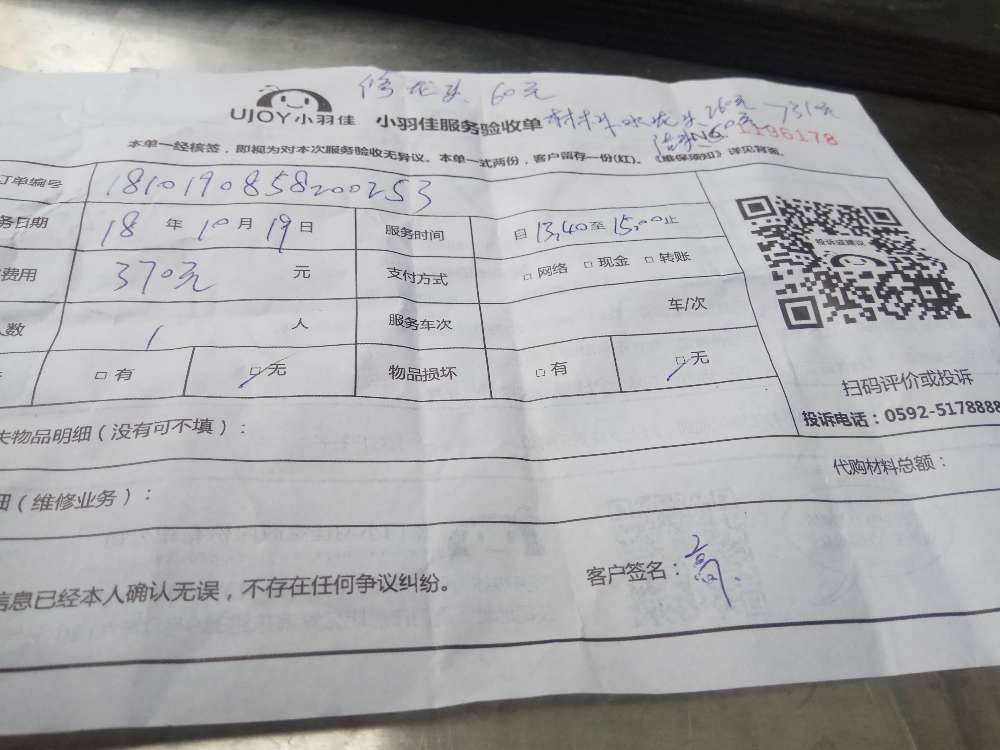 修龙头 60元
UJOY小羽佳 小羽佳服务验收单 材料水龙头 260元
NO 1196178
本单一经核签，即视为对本次服务验收无异议。本单一式两份，客户留存一份(红)。《维保须知》详见背面。
订单编号 1810190858200253
务日期 18 年 10 月 19 日 服务时间 自 13,40 至 15,00 止
费用 370元 元 支付方式 □ 网络 □ 现金 □ 转账
人数 1 人 服务车次 车/次
□ 有 □ 无 物品损坏 □ 有 □ 无
扫码评价或投诉
投诉电话：0592-5178888
失物品明细（没有可不填）：
代购材料总额：
细（维修业务）：
信息已经本人确认无误，不存在任何争议纠纷。 客户签名：高